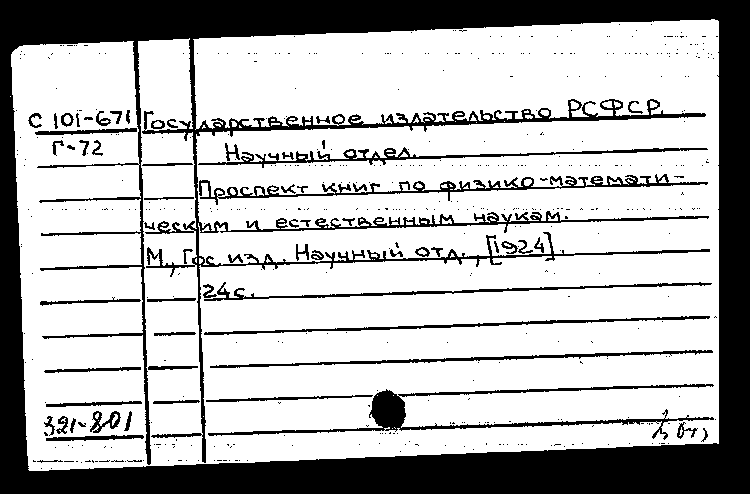 С 101-671 Государственное издательство РСФСР.
Г-72 Научный отдел.
Проспект книг по физико-математи-
ческим и естественным наукам.
М., Гос. изд. Научный отд., [1924].
24 с.
321-801